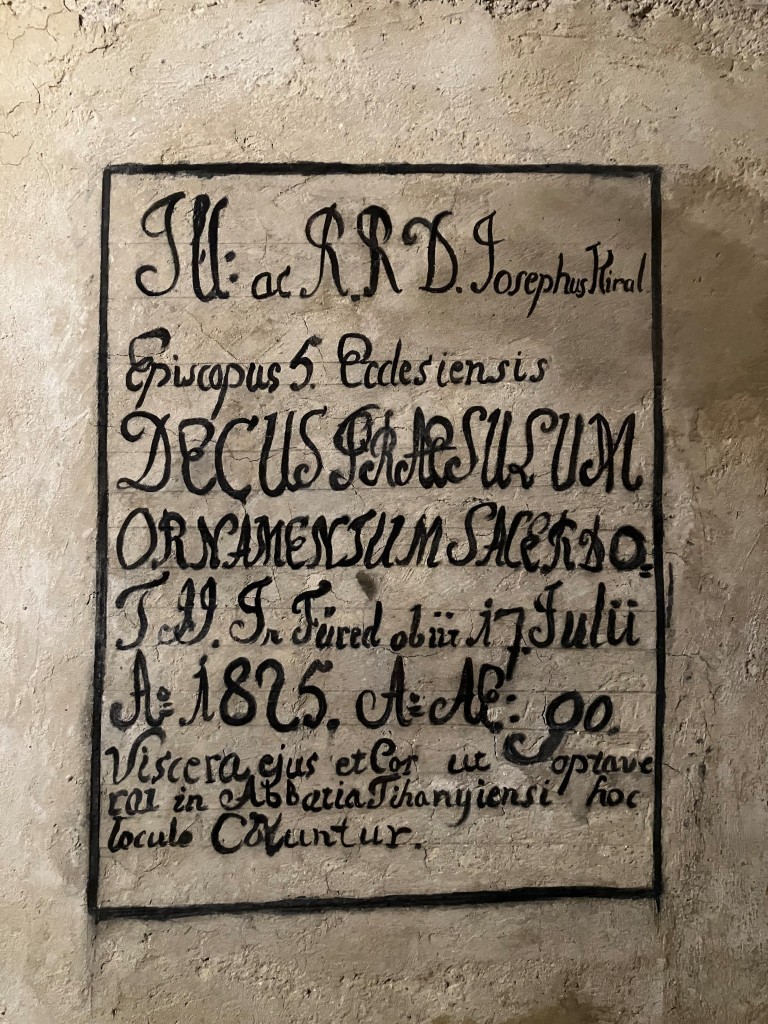 Ill: ac R.R D. Josephus Kiral
Episcopus 5. Ecclesiensis
DECUS PRAESULUM
ORNAMENTUM SACERDO=
In Füred obiit 17. Julii
Ao. 1825. A: AE: 90.
Viscera ejus et Cor ut optave
rat in Abbatia Tihanyiensi hoc
loculo Coluntur.